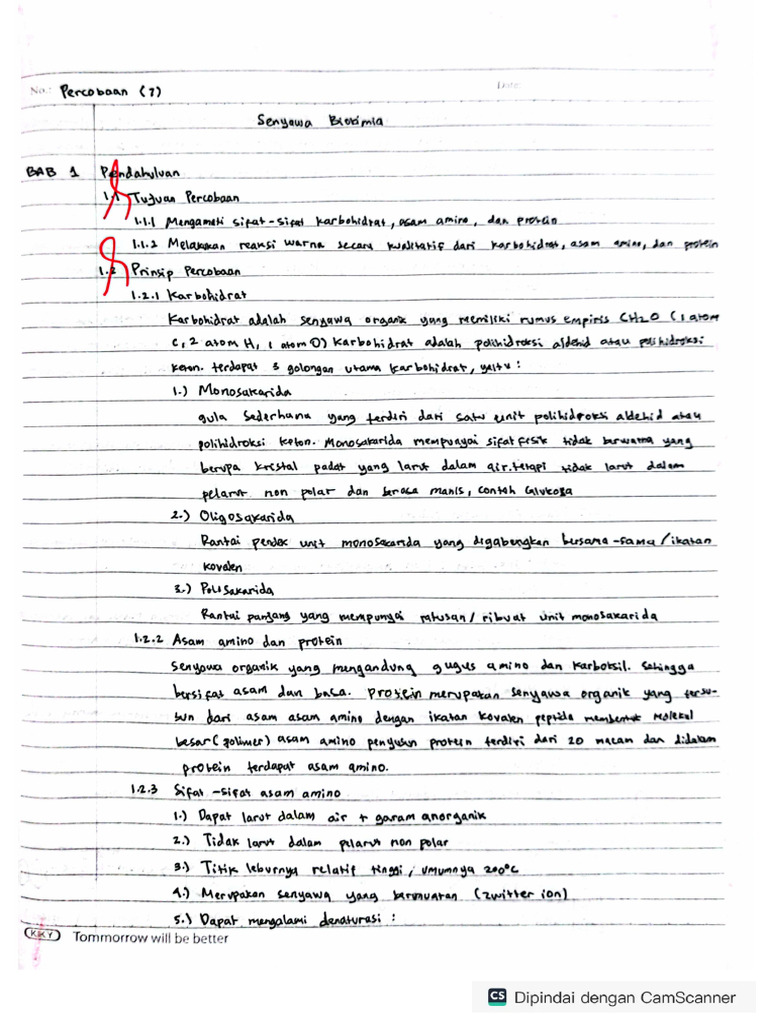 No.: Percobaan (7) Date:
Senyawa Biokimia
BAB 1 Pendahuluan
1.1 Tujuan Percobaan
1.1.1 Mengamati sifat-sifat karbohidrat, asam amino, dan protein
1.1.2 Melakukan reaksi warna secara kualitatif dari karbohidrat, asam amino, dan protein
1.2 Prinsip Percobaan
1.2.1 Karbohidrat
Karbohidrat adalah senyawa organik yang memiliki rumus empiris CH2O (1 atom
C, 2 atom H, 1 atom O) Karbohidrat adalah polihidroksi aldehid atau polihidroksi
keton. terdapat 3 golongan utama karbohidrat, yaitu :
1.) Monosakarida
gula sederhana yang terdiri dari satu unit polihidroksi aldehid atau
polihidroksi keton. Monosakarida mempunyai sifat fisik tidak berwarna yang
berupa kristal padat yang larut dalam air.tetapi tidak larut dalam
pelarut non polar dan berasa manis, contoh Glukosa
2.) Oligosakarida
Rantai pendek unit monosakarida yang digabungkan bersama-sama/ikatan
kovalen
3.) Polisakarida
Rantai panjang yang mempunyai ratusan/ribuat unit monosakarida
1.2.2 Asam amino dan protein
Senyawa organik yang mengandung gugus amino dan karboksil. Sehingga
bersifat asam dan basa. Protein merupakan senyawa organik yang tersu-
sun dari asam asam amino dengan ikatan kovalen peptida membentuk molekul
besar (polimer) asam amino penyusun protein terdiri dari 20 macam dan didalam
protein terdapat asam amino.
1.2.3 Sifat-sifat asam amino
1.) Dapat larut dalam air + garam anorganik
2.) Tidak larut dalam pelarut non polar
3.) Titik leburnya relatif tinggi, umumnya 200°C
4.) Merupakan senyawa yang bermuatan (zwitter ion)
5.) Dapat mengalami denaturasi :
KIKY Tommorrow will be better
CS Dipindai dengan CamScanner